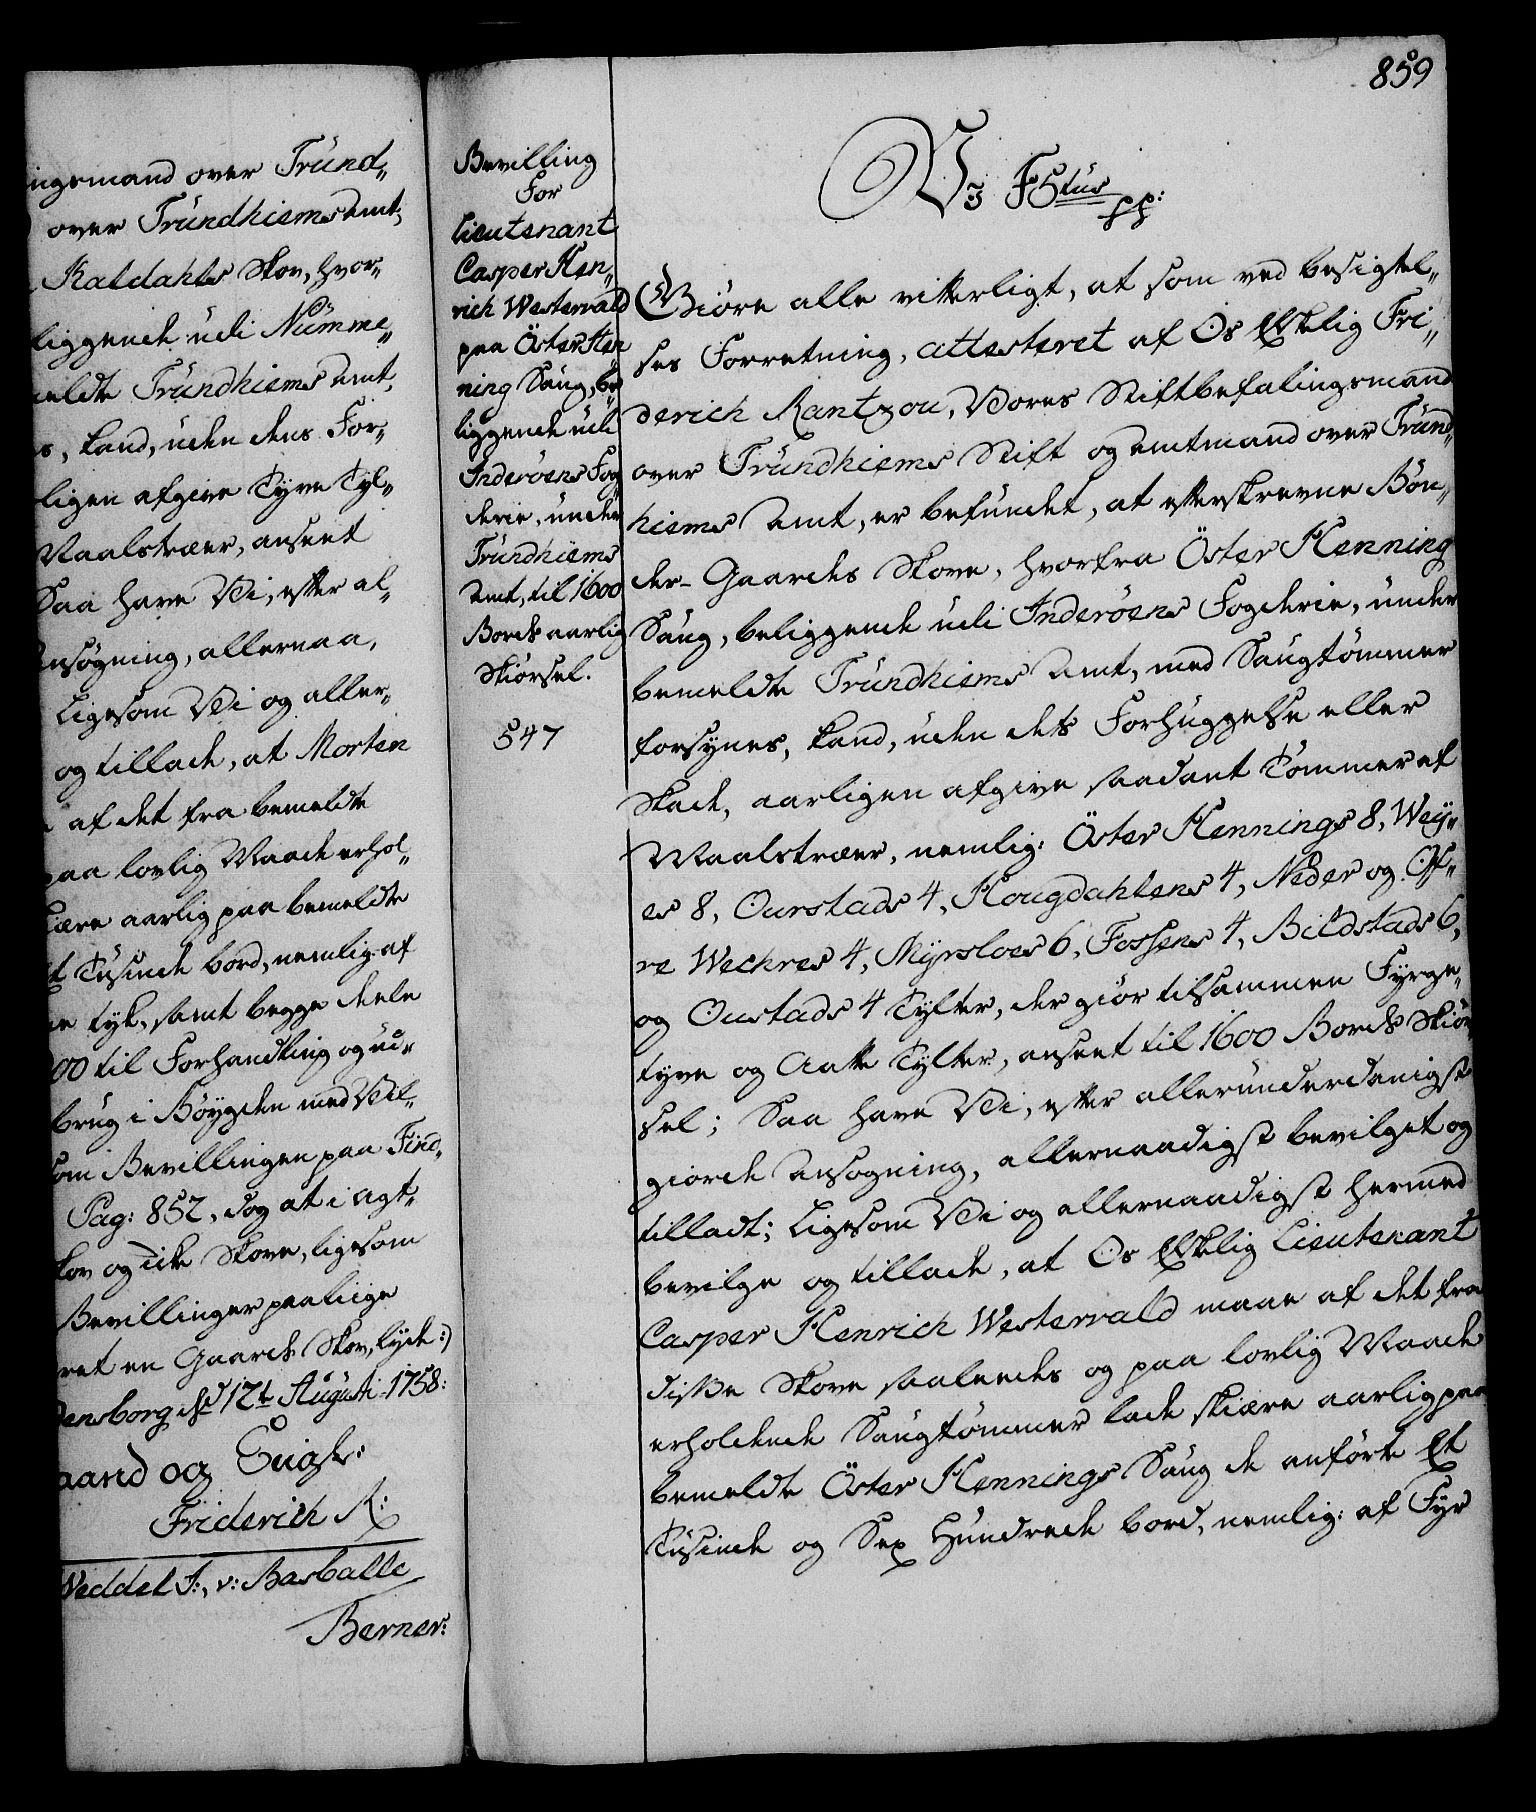 ingsmand over Tründ„
over Tründhiems Amt,
Kaldahls Skov, hvor„
liggende udi Nümme„
meldte Tründhiems Amt,
kand, uden dens For„
ligen afgive Tyve Tyl„
Maalstræer, anseet
Saa have Vi, efter al„
Ansøgning, allernaa,
Ligesom Vi og aller„
og tillade, at Morten
af det fra bemeldte
paa lovlig Maade erhol„
skiære aarlig paa bemeldte
Tusinde bord, nemlig: af
tyk, samt begge deele
00 til Forhandling og ud„
brug i Bøygden med Vil„
som Bevillingen paa Find„
Pag: 852, dog at i Agt„
skov og icke Skove, ligesom
Bevillinger paa liige
ret en Gaards Skov, lyde:)
densborg dend 12te Augusti 1758:
aand og Seigle:
Friderich R:
Weddel J:, v: Basballe
Berner:
859
Bevilling
For
Lieutenant
Casper Hen„
rich Westervald
paa Öster Hen
ning Saug, be„
liggende udi
Inderöens Fog„
derie, under
Tründhiems
Amt, til 1600
Bords aarlig
Skiørsel.
547
Vj F5tus
pp:
Giöre alle vitterligt, at som ved besigtel„
ses Forretning, attesteret af Os Elskelig Fri„
derich Rantzou, Vores Stiftbefalingsmand
over Tründhiems Stift og Amtmand over Tründ„
hiems Amt, er befundet, at efterskrevne Bön„
der-Gaardes Skove, hvorfra Öster Henning
Saug, beliggende udi Inderöens Fogderie, under
bemeldte Tründhiems Amt, med Saugtömmer
forsynes, kand, uden dets Forhuggelse eller
Skade, aarligen afgive saadant Tömmer af
Maalstræer, nemlig: Öster Hennings 8, Weÿ„
es 8, Ourstads 4, Hougdahlens 4, Neder og Öf„
re Wechres 4, Mÿrsloes 6, Fossens 4, Bildstads 6,
og Oustads 4 Tylter, der giör tilsammen Fyrge„
tyve og Aatte Tylter, anseet til 1600 Bords Skiör„
sel; Saa have Vi, efter allerunderdanigst
giorde Ansøgning, allernaadigst bevilget og
tilladt; Ligesom Vi og allernaadigst hermed
bevilge og tillade, at Os Elskelig Lieutenant
Casper Henrich Westervald maae af det fra
disse Skove saaledes og paa lovlig Maade
erholdende Saugtömmer lade skiære aarlig paa
bemeldte Öster Hennings Saug de anförte Et
Tusinde og Sex Hundrede bord, nemlig: af Fyr